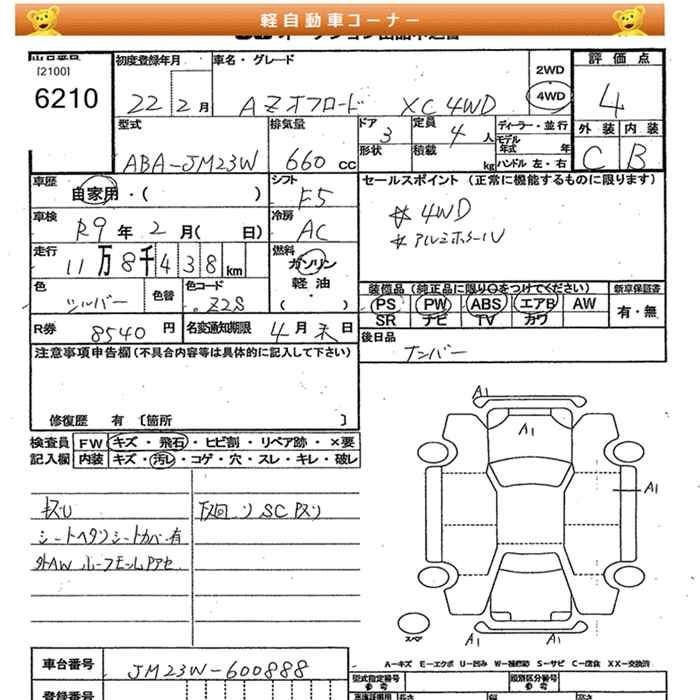 軽自動車コーナー
[2100]
6210
初度登録年月
22年 2月
車名・グレード
AZオフロード XC 4WD
2WD
4WD
評価点
4
外装 内装
C B
型式
ABA-JM23W
排気量
660 CC
ドア
3
形状
定員
4人
積載
kg
ディーラー・並行
モデル年式 年
ハンドル 左・右
車歴
自家用・( )
シフト
F5
セールスポイント (正常に機能するものに限ります)
☆4WD
*アルミホイール
車検
R9年 2月( 日)
冷房
AC
走行
11万8千438km
燃料
ガソリン
軽油・
( )
色
シルバー
色替
色コード
Z2S
装備品 (純正品に限り○をつけてください)
新車保証書
PS PW ABS エアB AW
SR ナビ TV カワ
有・無
R券 8540円
名変通知期限 4月末日
後日品
ナンバー
注意事項申告欄 (不具合内容等は具体的に記入して下さい)
修復歴 有 〔箇所 〕
検査員
記入欄
FW キズ・飛石・ヒビ割・リペア跡・×要
内装 キズ・汚レ・コゲ・穴・スレ・キレ・破レ
キズU
シートヘタリシートカバー有
下回りSCキズ
A1
A1
A1
A1
A1
スペア
A-キズ E-エクボ U-凹み W-補修跡 S-サビ C-腐食 XX-交換済
車台番号
JM23W-600888
登録番号
型式指定番号
参考
類別区分番号
参考